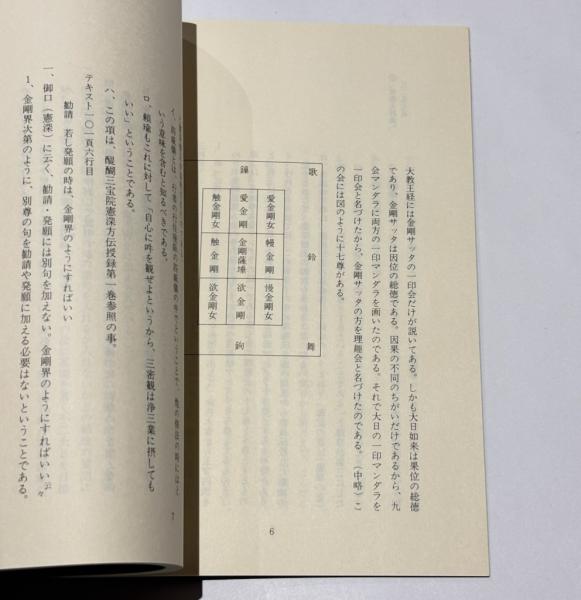 大教王経には金剛サッタの一印会だけが説いてある。しかも大日如来は果位の総徳
であり、金剛サッタは因位の総徳である。因果の不同のちがいだけであるから、九
会マンダラに両方の一印マンダラを画いたのである。それで大日の一印マンダラを
一印会と名づけたから、金剛サッタの方を理趣会と名づけたのである。(中略)こ
の会には図のように十七尊がある。
歌
鈴
舞
鏁
鉤
愛金剛女
慢金剛
慢金剛女
愛金剛
金剛薩埵
欲金剛
触金剛女
触金剛
欲金剛女
6
いう意味を含むと知るべきである。
ロ、頼瑜もこれに対して「自心に吽を観ぜよというから、三密観は浄三業に摂しても
いい」ということである。
ハ、この項は、醍醐三宝院憲深方伝授録第一巻参照の事。
テキスト一〇一頁六行目
勧請 若し発願の時は、金剛界のようにすればいい
一、御口(憲深)に云く、勧請・発願には別句を加えない。金剛界のようにすればいい云々
1、金剛界次第のように、別尊の句を勧請や発願に加える必要はないということである。
7